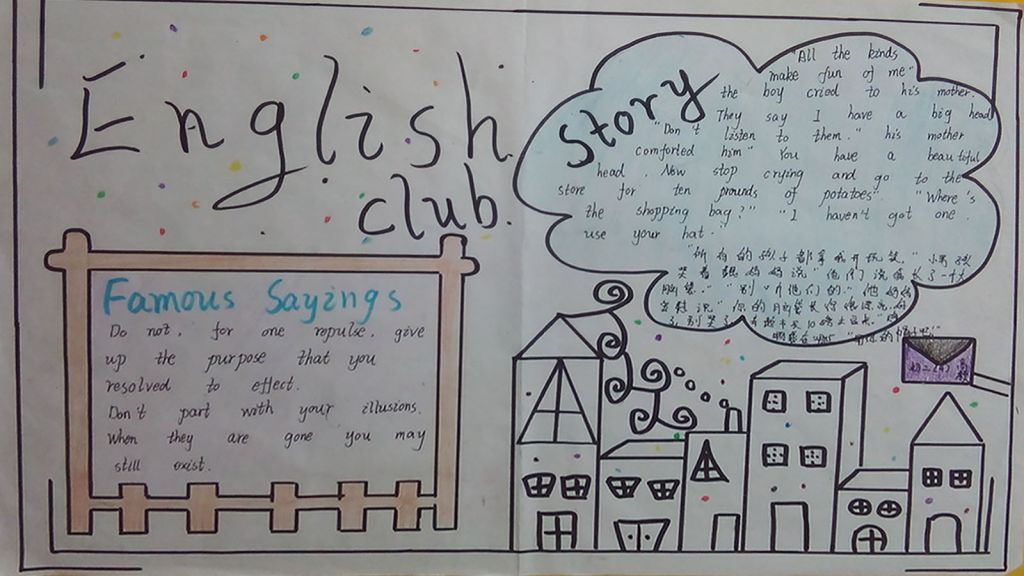 English
club.
Famous Sayings
Do not, for one repulse, give
up the purpose that you
resolved to effect.
Don't part with your illusions.
When they are gone you may
still exist.
Story
"All the kinds
make fun of me"
the boy cried to his mother.
"They say I have a big head
"Don't listen to them." his mother
comforted him" You have a beautiful
head. Now stop crying and go to the
store for ten pounds of potatoes". "Where's
the shopping bag?" "I haven't got one.
use your hat."
"所有的孩子都拿我开玩笑." 小男孩
哭着跟妈妈说" 他们说我长了一个大
脑袋." 别 他们的." 他妈妈
安慰说" 你的脑袋长得很漂亮
别哭了